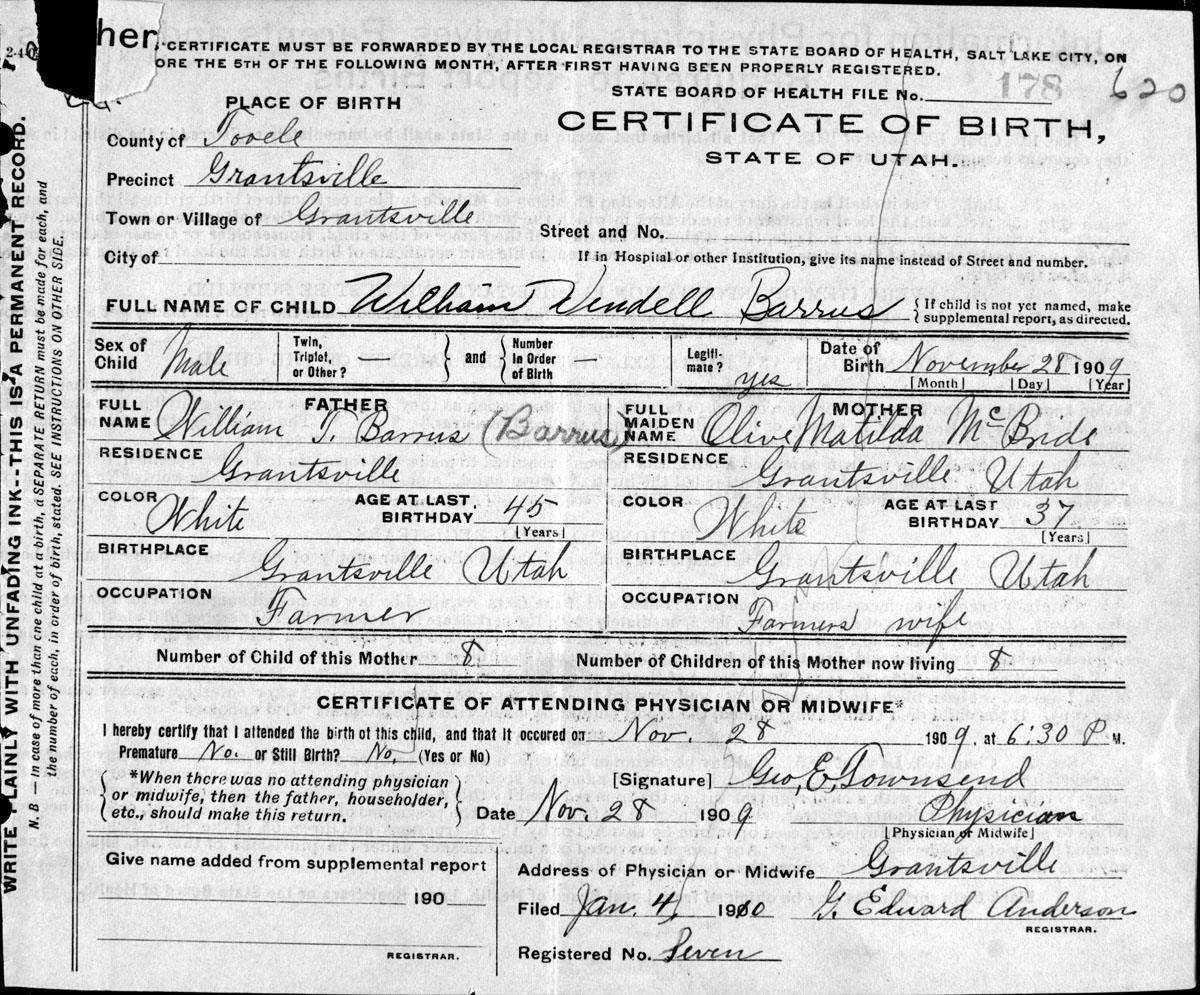 her
2-4-0
CERTIFICATE MUST BE FORWARDED BY THE LOCAL REGISTRAR TO THE STATE BOARD OF HEALTH, SALT LAKE CITY, ON
ORE THE 5TH OF THE FOLLOWING MONTH, AFTER FIRST HAVING BEEN PROPERLY REGISTERED.
STATE BOARD OF HEALTH FILE No. 178 620
PLACE OF BIRTH
CERTIFICATE OF BIRTH,
STATE OF UTAH.
County of Tooele
Precinct Grantsville
Town or Village of Grantsville
Street and No.
City of
If in Hospital or other Institution, give its name instead of Street and number.
FULL NAME OF CHILD William Wendell Barrus { If child is not yet named, make supplemental report, as directed.
Sex of Child Male Twin, Triplet, or Other? } and { Number in Order of Birth Legiti-mate? yes Date of Birth November 28 1909
[Month] [Day] [Year]
FULL NAME FATHER William T. Barrus (Barrus)
FULL MAIDEN NAME MOTHER Olive Matilda McBride
RESIDENCE Grantsville
RESIDENCE Grantsville Utah
COLOR White AGE AT LAST BIRTHDAY 45 [Years]
COLOR White AGE AT LAST BIRTHDAY 37 [Years]
BIRTHPLACE Grantsville Utah
BIRTHPLACE Grantsville Utah
OCCUPATION Farmer
OCCUPATION Farmers wife
Number of Child of this Mother 8 Number of Children of this Mother now living 8
CERTIFICATE OF ATTENDING PHYSICIAN OR MIDWIFE*
I hereby certify that I attended the birth of this child, and that it occured on Nov. 28 1909, at 6:30 P M.
Premature No. or Still Birth? No. (Yes or No)
{ *When there was no attending physician
or midwife, then the father, householder,
etc., should make this return. }
[Signature] Geo. E. Townsend
Date Nov. 28 1909 Physician
[Physician or Midwife]
Give name added from supplemental report
190
REGISTRAR.
Address of Physician or Midwife Grantsville
Filed Jan. 4, 1910 G. Edward Anderson
REGISTRAR.
Registered No. Seven
WRITE PLAINLY WITH UNFADING INK--THIS IS A PERMANENT RECORD.
N. B. — In case of more than one child at a birth, a SEPARATE RETURN must be made for each, and
the number of each, in order of birth, stated. SEE INSTRUCTIONS ON OTHER SIDE.